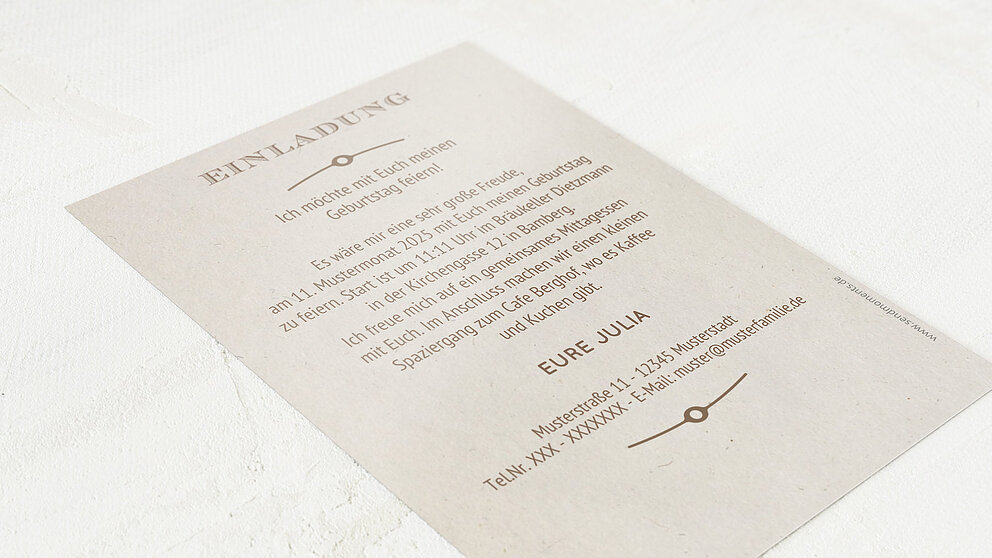 EINLADUNG
Ich möchte mit Euch meinen
Geburtstag feiern!
Es wäre mir eine sehr große Freude,
am 11. Mustermonat 2025 mit Euch meinen Geburtstag
zu feiern. Start ist um 11:11 Uhr im Bräukeller Dietzmann
in der Kirchengasse 12 in Bamberg.
Ich freue mich auf ein gemeinsames Mittagessen
mit Euch. Im Anschluss machen wir einen kleinen
Spaziergang zum Cafe Berghof, wo es Kaffee
und Kuchen gibt.
EURE JULIA
Musterstraße 11 - 12345 Musterstadt
Tel.Nr. XXX - XXXXXXX - E-Mail: muster@musterfamilie.de
www.sendmoments.de